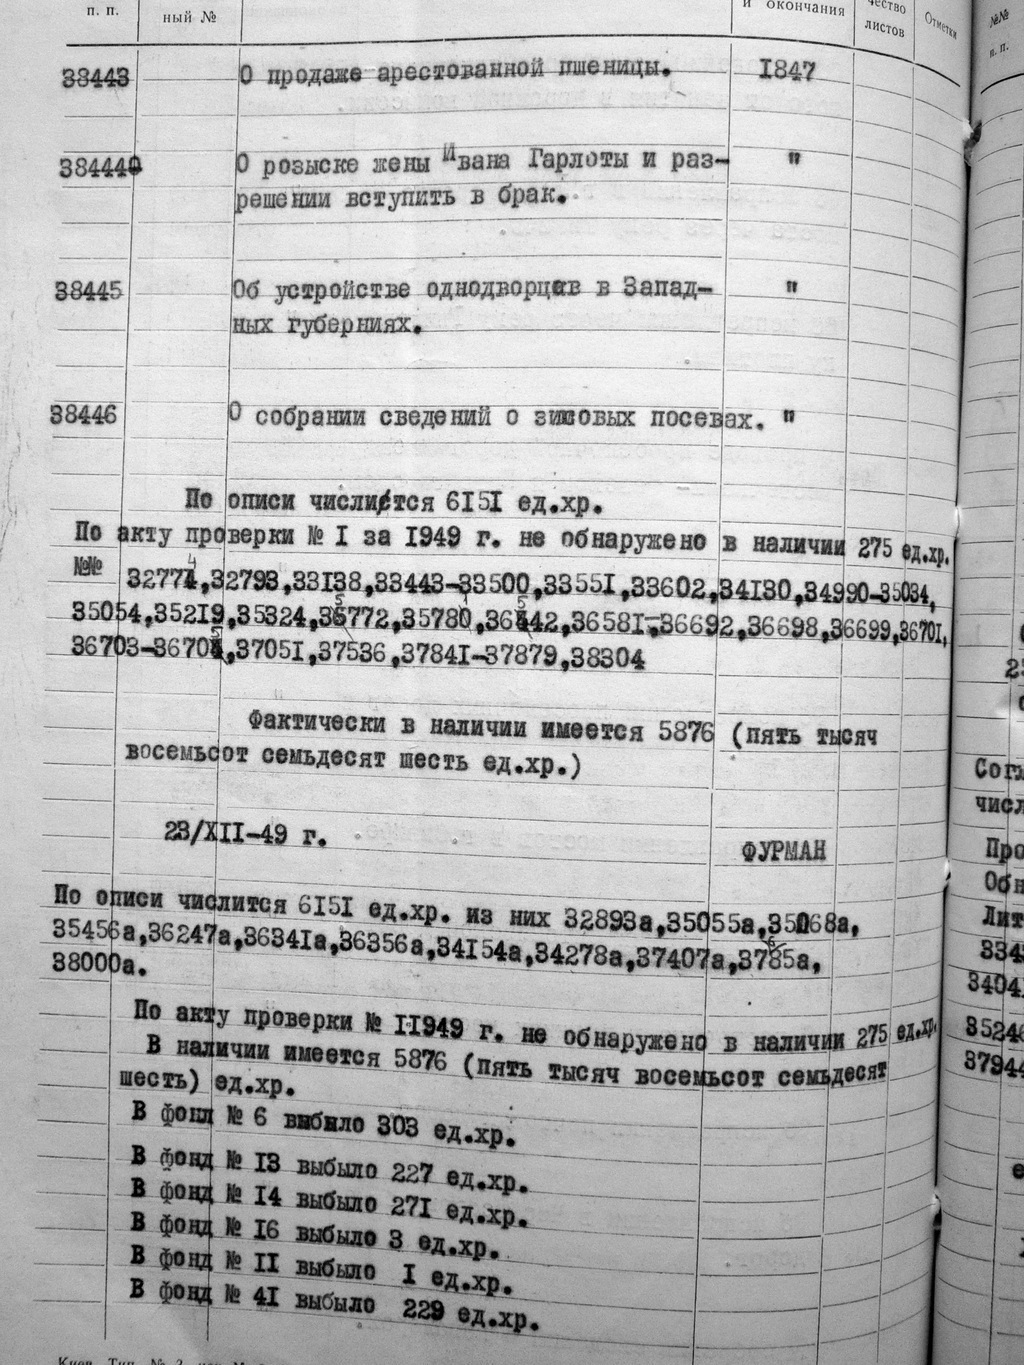 п. п.
ный №
и окончания
чество
листов
Отметки
№№
п. п.
38443 О продаже арестованной пшеницы. I847
38444 О розыске жены Ивана Гарлоты и раз- "
решении вступить в брак.
38445 Об устройстве однодворцев в Запад- "
ных губерниях.
38446 О собрании сведений о зимовых посевах. "
По описи числится 6I5I ед.хр.
По акту проверки № I за I949 г. не обнаружено в наличии 275 ед.хр.
№№ 32774,32793,33I38,33443-33500,3355I,33602,34I30,34990-35034,
35054,352I9,35324,35772,35780,36542,3658I-36692,36698,36699,3670I,
36703-36705,3705I,37536,3784I-37879,38304
Фактически в наличии имеется 5876 (пять тысяч
восемьсот семьдесят шесть ед.хр.)
23/XII-49 г.
ФУРМАН
По описи числится 6I5I ед.хр. из них 32893а,35055а,35068а,
35456а,36247а,3634Iа,36356а,34I54а,34278а,37407а,3785а,
38000а.
По акту проверки № II949 г. не обнаружено в наличии 275 ед.хр.
В наличии имеется 5876 (пять тысяч восемьсот семьдесят
шесть) ед.хр.
В фонд № 6 выбыло 303 ед.хр.
В фонд № I3 выбыло 227 ед.хр.
В фонд № I4 выбыло 27I ед.хр.
В фонд № I6 выбыло 3 ед.хр.
В фонд № II выбыло I ед.хр.
В фонд № 4I выбыло 229 ед.хр.
Киев. Тип. № 2